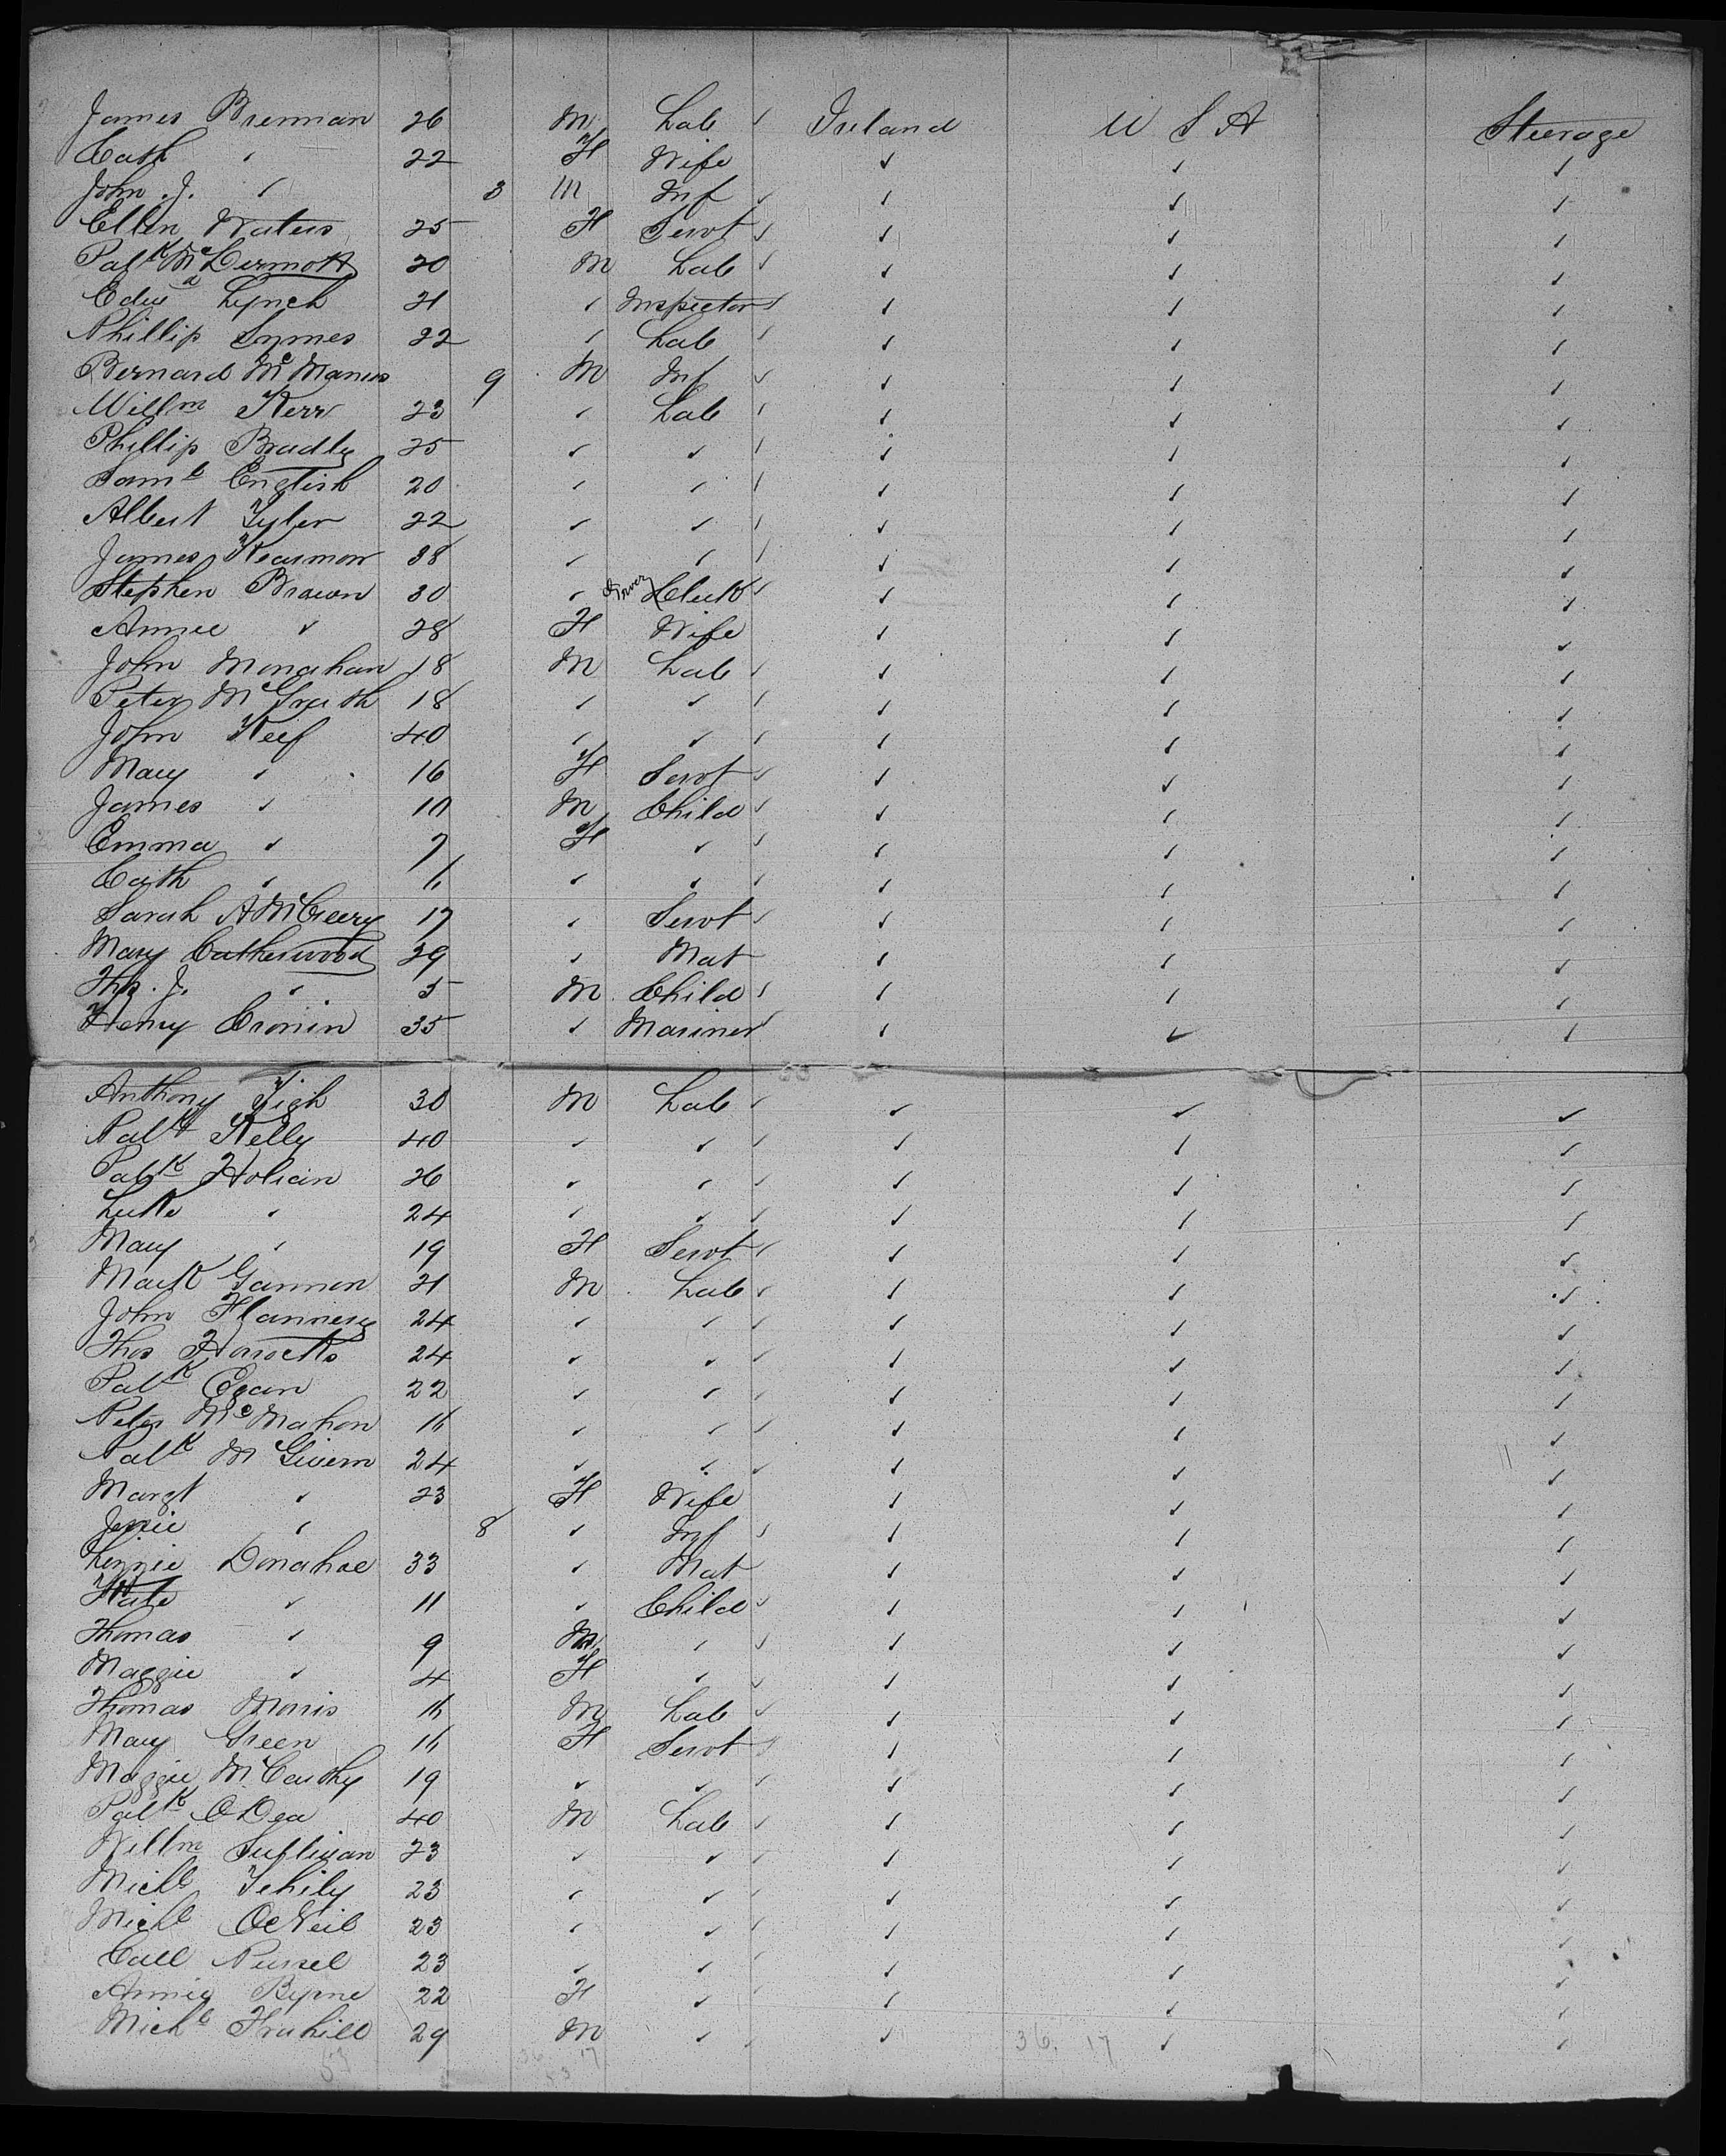 James Brennan 26 M Lab ✓ Ireland U S A Steerage
Cath " 22 F Wife ✓ ✓ ✓
John. J. " 3 M Inf ✓ ✓ ✓ ✓
Ellen Waters 25 F Servt ✓ ✓ ✓ ✓
Patk McDermott 20 M Lab ✓ ✓ ✓ ✓
Edwd Lynch 21 " Inspector ✓ ✓ ✓ ✓
Phillip Symes 22 " Lab ✓ ✓ ✓ ✓
Bernard McManus 9 M Inf ✓ ✓ ✓ ✓
Willm Kerr 23 " Lab ✓ ✓ ✓ ✓
Phillip Bradly 25 " " ✓ ✓ ✓ ✓
Saml English 20 " " ✓ ✓ ✓ ✓
Albert Tyler 22 " " ✓ ✓ ✓ ✓
James 38 " " ✓ ✓ ✓ ✓
Stephen Brown 30 " Clerk ✓ ✓ ✓ ✓
Annie " 28 F Wife ✓ ✓ ✓
John Monahan 18 M Lab ✓ ✓ ✓ ✓
Peter McGrath 18 " " ✓ ✓ ✓ ✓
John Keef 40 " " ✓ ✓ ✓ ✓
Mary " 16 F Servt ✓ ✓ ✓ ✓
James " M Child ✓ ✓ ✓ ✓
Emma " 7 F " ✓ ✓ ✓ ✓
Cath " 6 " " ✓ ✓ ✓ ✓
Sarah A McCreery 17 " Servt ✓ ✓ ✓ ✓
Mary Catherwood 29 " Mat ✓ ✓ ✓
Thos. J. " 5 M Child ✓ ✓ ✓ ✓
Henry Cronin 35 " Mariner ✓ ✓ ✓ ✓
Anthony Tigh 30 M Lab ✓ ✓ ✓ ✓
Patk Kelly 40 " " ✓ ✓ ✓ ✓
Patk Holian 26 " " ✓ ✓ ✓ ✓
Luke " 24 " " ✓ ✓ ✓ ✓
Mary " 19 F Servt ✓ ✓ ✓ ✓
Mark Gannon 21 M Lab ✓ ✓ ✓ ✓
John Flannery 24 " " ✓ ✓ ✓ ✓
Thos Horrocks 24 " " ✓ ✓ ✓ ✓
Patk Egan 22 " " ✓ ✓ ✓ ✓
Peter McMahon 16 " " ✓ ✓ ✓ ✓
Patk McGivern 24 " " ✓ ✓ ✓ ✓
Margt " 23 F Wife ✓ ✓ ✓
Jessie " 8 " Inf ✓ ✓ ✓ ✓
Lizzie Donahoe 33 " Mat ✓ ✓ ✓
Kate " 11 " Child ✓ ✓ ✓ ✓
Thomas " 9 M " ✓ ✓ ✓ ✓
Maggie " 4 F " ✓ ✓ ✓ ✓
Thomas Morris 16 M Lab ✓ ✓ ✓ ✓
Mary Green 16 F Servt ✓ ✓ ✓ ✓
Maggie McCarthy 19 " " ✓ ✓ ✓ ✓
Patk O'Dea 40 M Lab ✓ ✓ ✓ ✓
Willm Sullivan 23 " " ✓ ✓ ✓ ✓
Michl Tehily 23 " " ✓ ✓ ✓ ✓
Michl O'Neil 23 " " ✓ ✓ ✓ ✓
23 " " ✓ ✓ ✓ ✓
Annie Byrne 22 F " ✓ ✓ ✓ ✓
Michl Frahill 29 M " ✓ ✓ ✓ ✓
53 36 17 36. 17
53